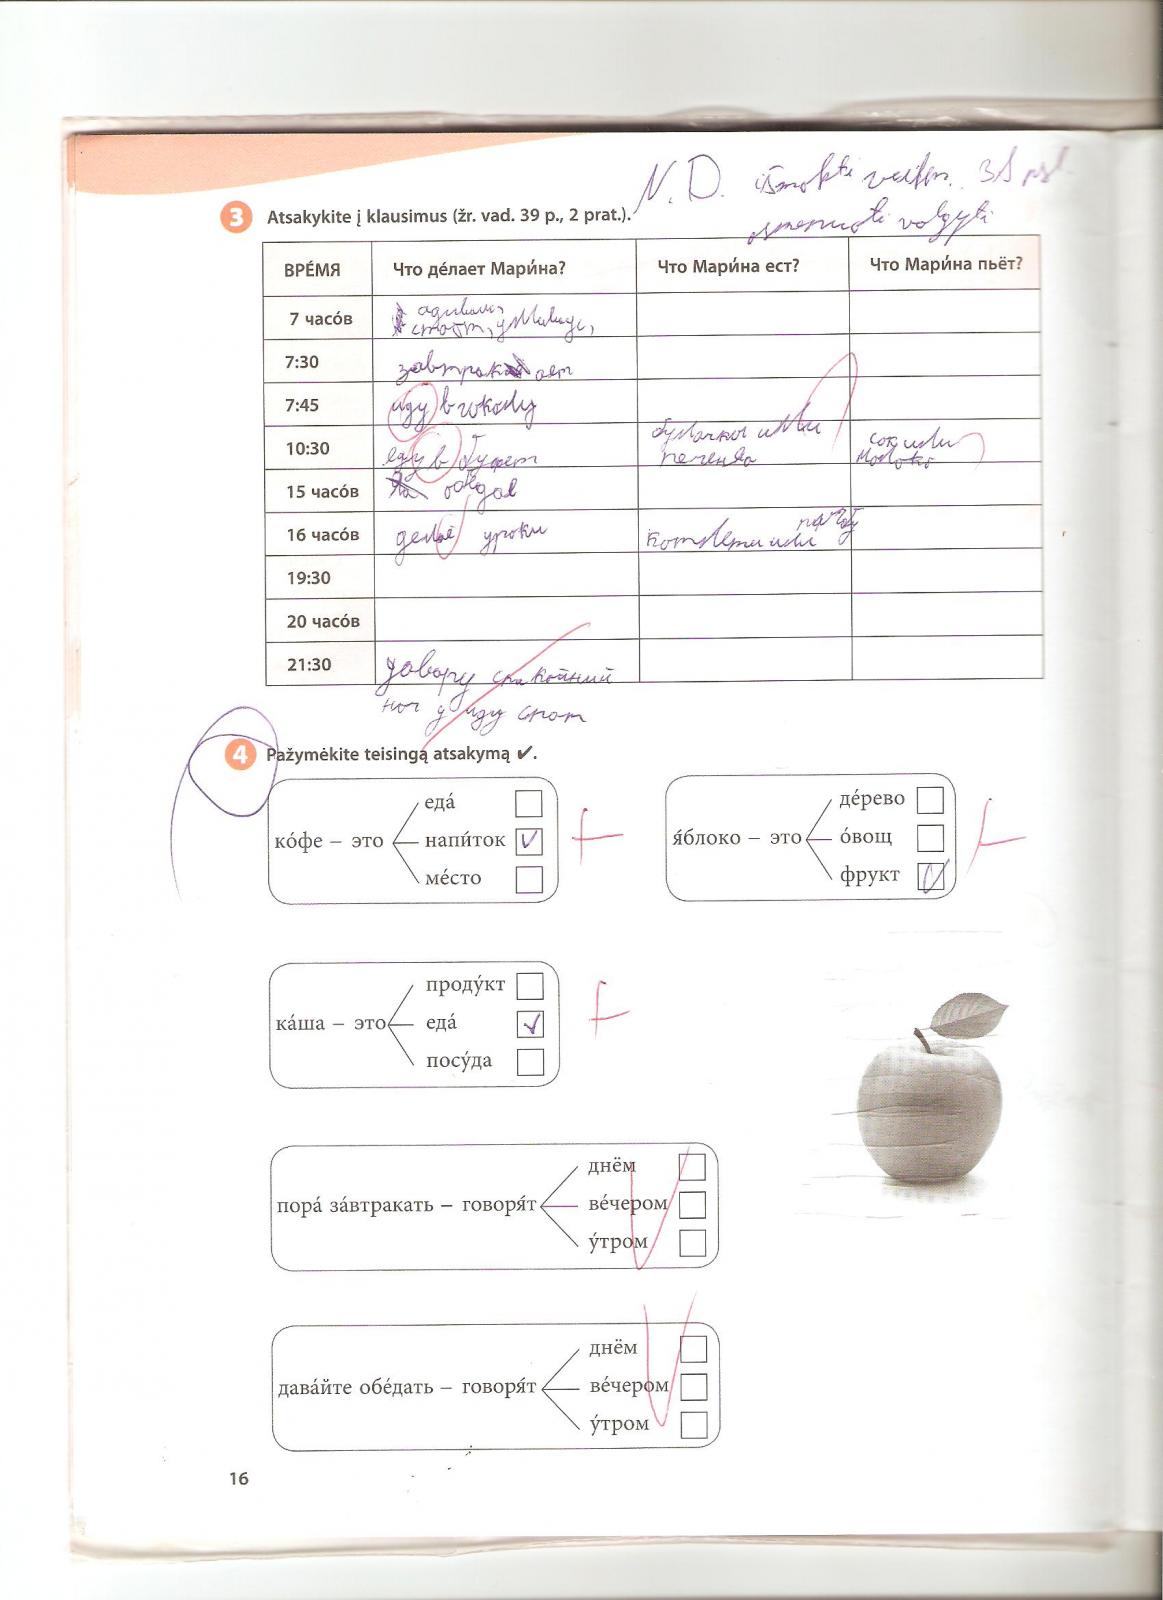 N. D. išmokti veiksm. 38 psl.
asmenuoti valgyti
3 Atsakykite į klausimus (žr. vad. 39 p., 2 prat.).
ВРЕ́МЯ Что де́лает Мари́на? Что Мари́на ест? Что Мари́на пьёт?
7 часо́в
7:30 завтракает
7:45 иду в
10:30 еду в буфет булочки или печенье сок или молоко
15 часо́в обедае
16 часо́в уроки котлети или
19:30
20 часо́в
21:30 говору спакойний
ноч у иду спат
4 Pažymėkite teisingą atsakymą ✔.
еда́
ко́фе – это напи́ток ✓
ме́сто
де́рево
я́блоко – это о́вощ
фрукт ✓
проду́кт
ка́ша – это еда́ ✓
посу́да
днём
пора́ за́втракать – говоря́т ве́чером
у́тром
днём
дава́йте обе́дать – говоря́т ве́чером
у́тром
16